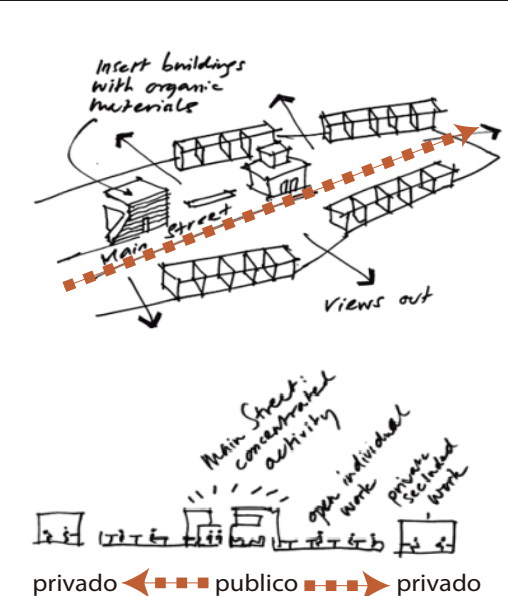 Insert buildings
with organic
materials
Main Street
Views out
Main Street:
concentrated
activity
open individual
work
private
secluded
work
privado publico privado